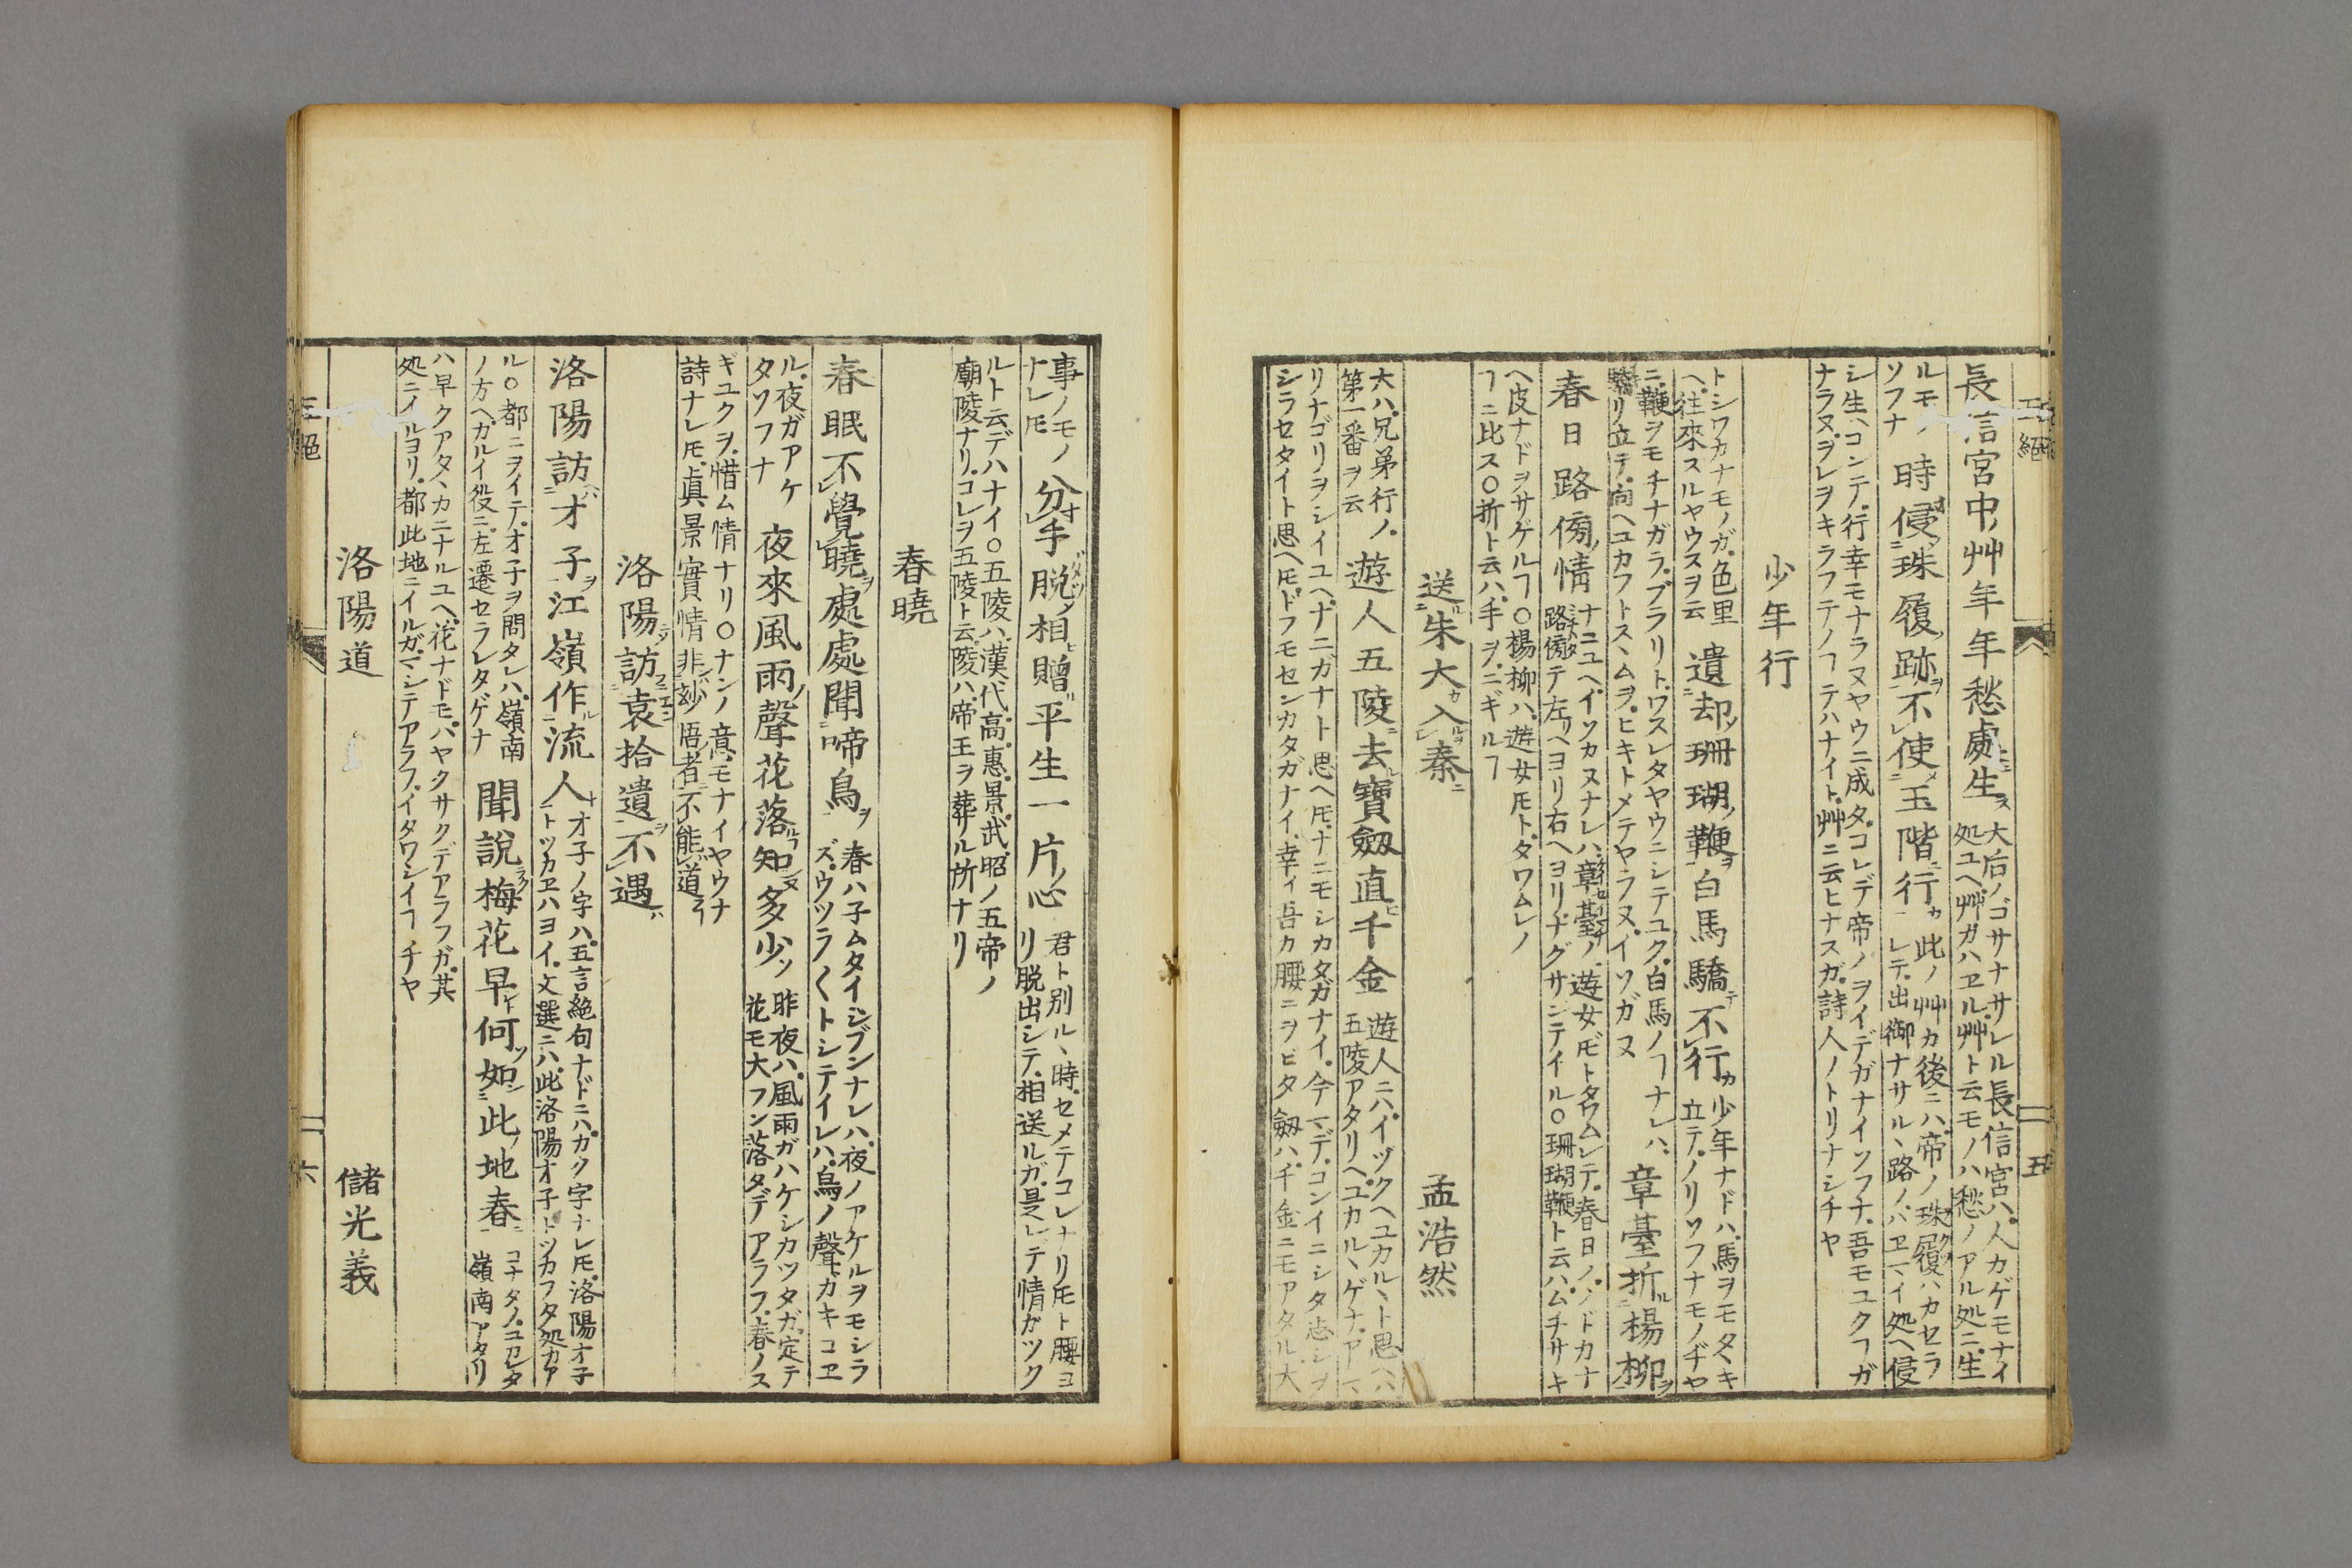 長信宮中艸年年愁處生
大后ノゴサナサレル長信宮ハ人カゲモナイ
処ユヘ艸ガハヱル艸ト云モノハ愁ノアル処ニ生
ルモノ
ソフナ
時侵珠履跡不使玉階行
此ノ艸カ後ニハ帝ノ珠履ハカセラ
レテ出御ナサル、路ノハヱマイ処ヘ侵
シ生ヘコンテ行幸モナラヌヤウニ成タコレデ帝ノヲイデガナイソフナ吾モユクヿガ
ナラヌヲレヲキラフテノヿテハナイト艸ニ云ヒナスガ詩人ノトリナシチヤ
少年行
遺却珊瑚鞭白馬驕不行
少年ナドハ馬ヲモタヽキ
立テノリソフナモノヂヤ
トシワカナモノガ色里
ヘ往來スルヤウスヲ云
章臺折楊柳
ニ鞭ヲモチナガラブラリトワスレタヤウニシテユク白馬ノヿナレハ
リ立テ向ヘユカフトスヽムヲヒキトメテヤラヌイソガヌ
春日路傍情
ナニユヘイソカヌナレハ章臺ノ遊女𪜈トタワムレテ春日ノノドカナ
路傍テ左リヘヨリ右ヘヨリチグサシテイル○珊瑚鞭ト云ハムチサキ
ヘ皮ナドヲサゲルヿ○楊柳ハ遊女𪜈トタワムレノ
ヿニ比ス○折ト云ハ手ヲニギルヿ
送朱大入秦
孟浩然
大ハ兄弟行ノ
第一番ヲ云
遊人五陵去寶劔直千金
遊人ニハイヅクヘユカル、ト思ヘハ
五陵アタリヘユカル、ゲナアマ
リナゴリヲシイユヘナニガナト思ヘ𪜈ナニモシカタガナイ今マデコンイニシタ志シヲ
シラセタイト思ヘ𪜈ドフモセンカタガナイ幸イ吾カ腰ニヲビタ劔ハ千金ニモアタル大
五絕
五
事ノモノ
ナレ𪜈
分手脱相贈平生一片心
君ト別ル、時セメテコレナリ𪜈ト腰ヨ
リ脱出シテ相送ルガ是レデ情ガツク
ルト云デハナイ○五陵ハ漢代高惠景武昭ノ五帝ノ
廟陵ナリコレヲ五陵ト云陵ハ帝王ヲ葬ル所ナリ
春曉
春眠不覺曉處處聞啼鳥
春ハ子ムタイシブンナレハ夜ノアケルヲモシラ
ズウツラ〱トシテイレハ鳥ノ聲ガキコヱ
ル夜ガアケ
タソフナ
夜來風雨聲花落知多少
昨夜ハ風雨ガハケシカツタガ定テ
花モ大フン落タデアラフ春ノス
ギユクヲ惜ム情ナリ○ナンノ意モナイヤウナ
詩ナレ𪜈眞景實情非玅悟者不能道
洛陽訪袁拾遺不遇
洛陽訪才子江嶺作流人
才子ノ字ハ五言絕句ナドニハカク字ナレ𪜈洛陽才子
トツカヱハヨイ文選ニハ此洛陽才子トツカフタ処カア
ル○都ニヲイテ才子ヲ問タレハ嶺南
ノ方ヘカルイ役ニ左遷セラレタゲナ
聞說梅花早何如此地春
コナタノコカレタ
嶺南アタリ
ハ早クアタヽカニナルユヘ花ナドモハヤクサクデアラフガ其
処ニイルヨリ都此地ニイルガマシテアラフイタワシイヿチヤ
洛陽道
儲光義
五絕
六